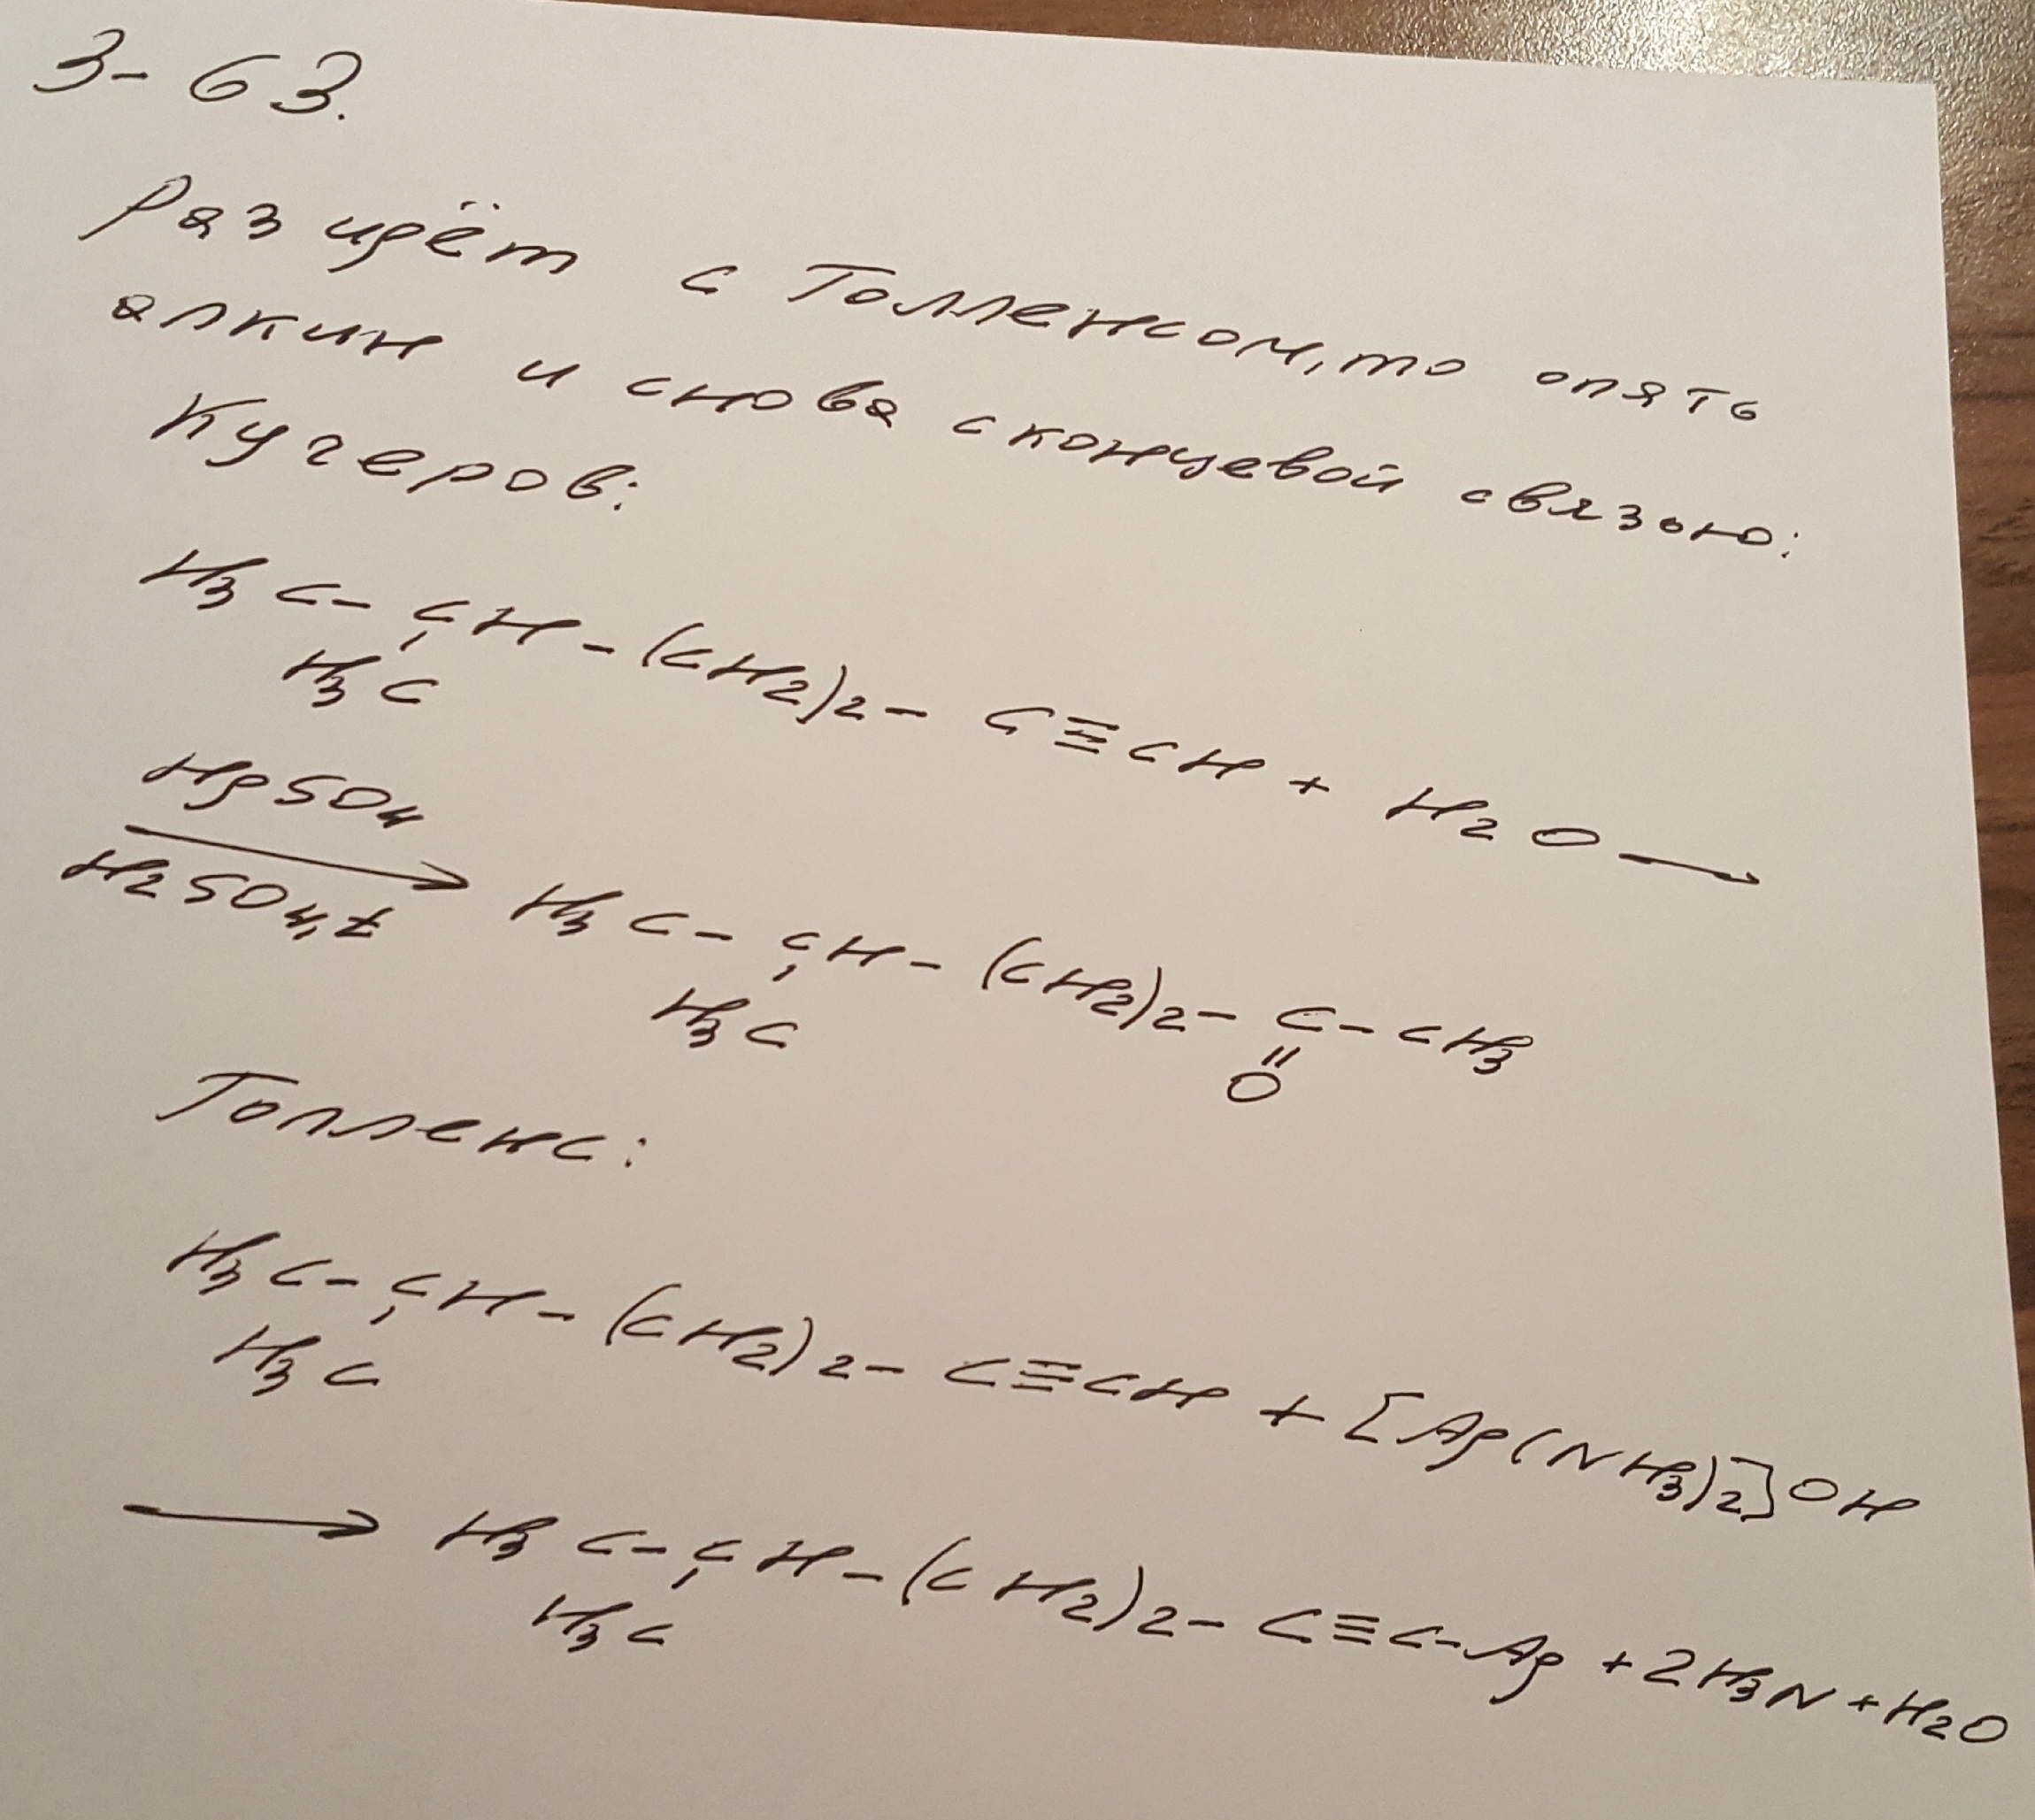 3-63.
Раз идёт с Толленсом, то опять
алкин и снова с концевой связью:
Кучеров:
H3C-CH-(CH2)2-C≡CH + H2O →
H3C
HgSO4
→ H3C-CH-(CH2)2-C-CH3
H2SO4, t
H3C
O
Толленс:
H3C-CH-(CH2)2-C≡CH + [Ag(NH3)2]OH
H3C
→ H3C-CH-(CH2)2-C≡C-Ag + 2H3N + H2O
H3C